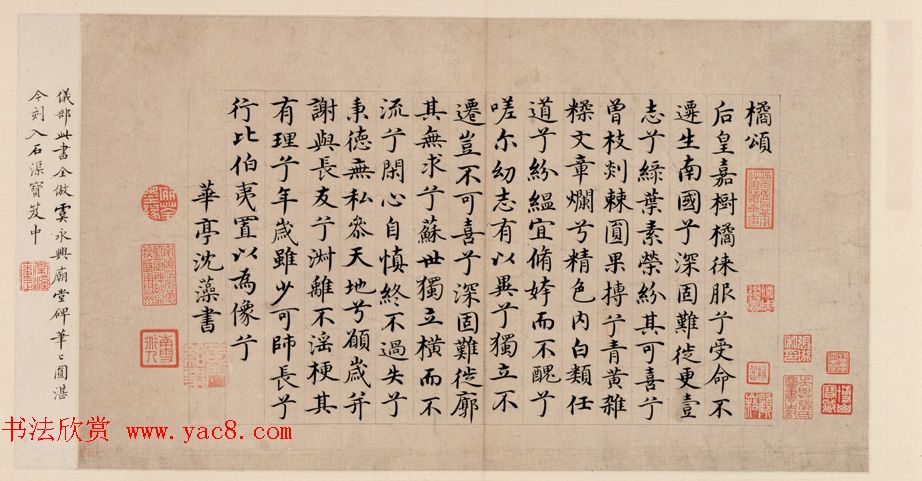 橘頌
后皇嘉樹橘徠服兮受命不
遷生南國兮深固難徙更壹
志兮綠葉素榮紛其可喜兮
曾枝剡棘圓果摶兮青黃雜
糅文章爛兮精色內白類任
道兮紛緼宜脩姱而不醜兮
嗟尔幼志有以異兮獨立不
遷豈不可喜兮深固難徙廓
其無求兮蘇世獨立橫而不
流兮閑心自慎終不過失兮
秉德無私叅天地兮願歲并
謝與長友兮淑離不滛梗其
有理兮年歲雖少可師長兮
行比伯夷置以為像兮
華亭沈藻書
儀部此書全倣虞永興廟堂碑筆筆圓湛
今刻入石渠寶笈中
书法欣赏 www.yac8.com